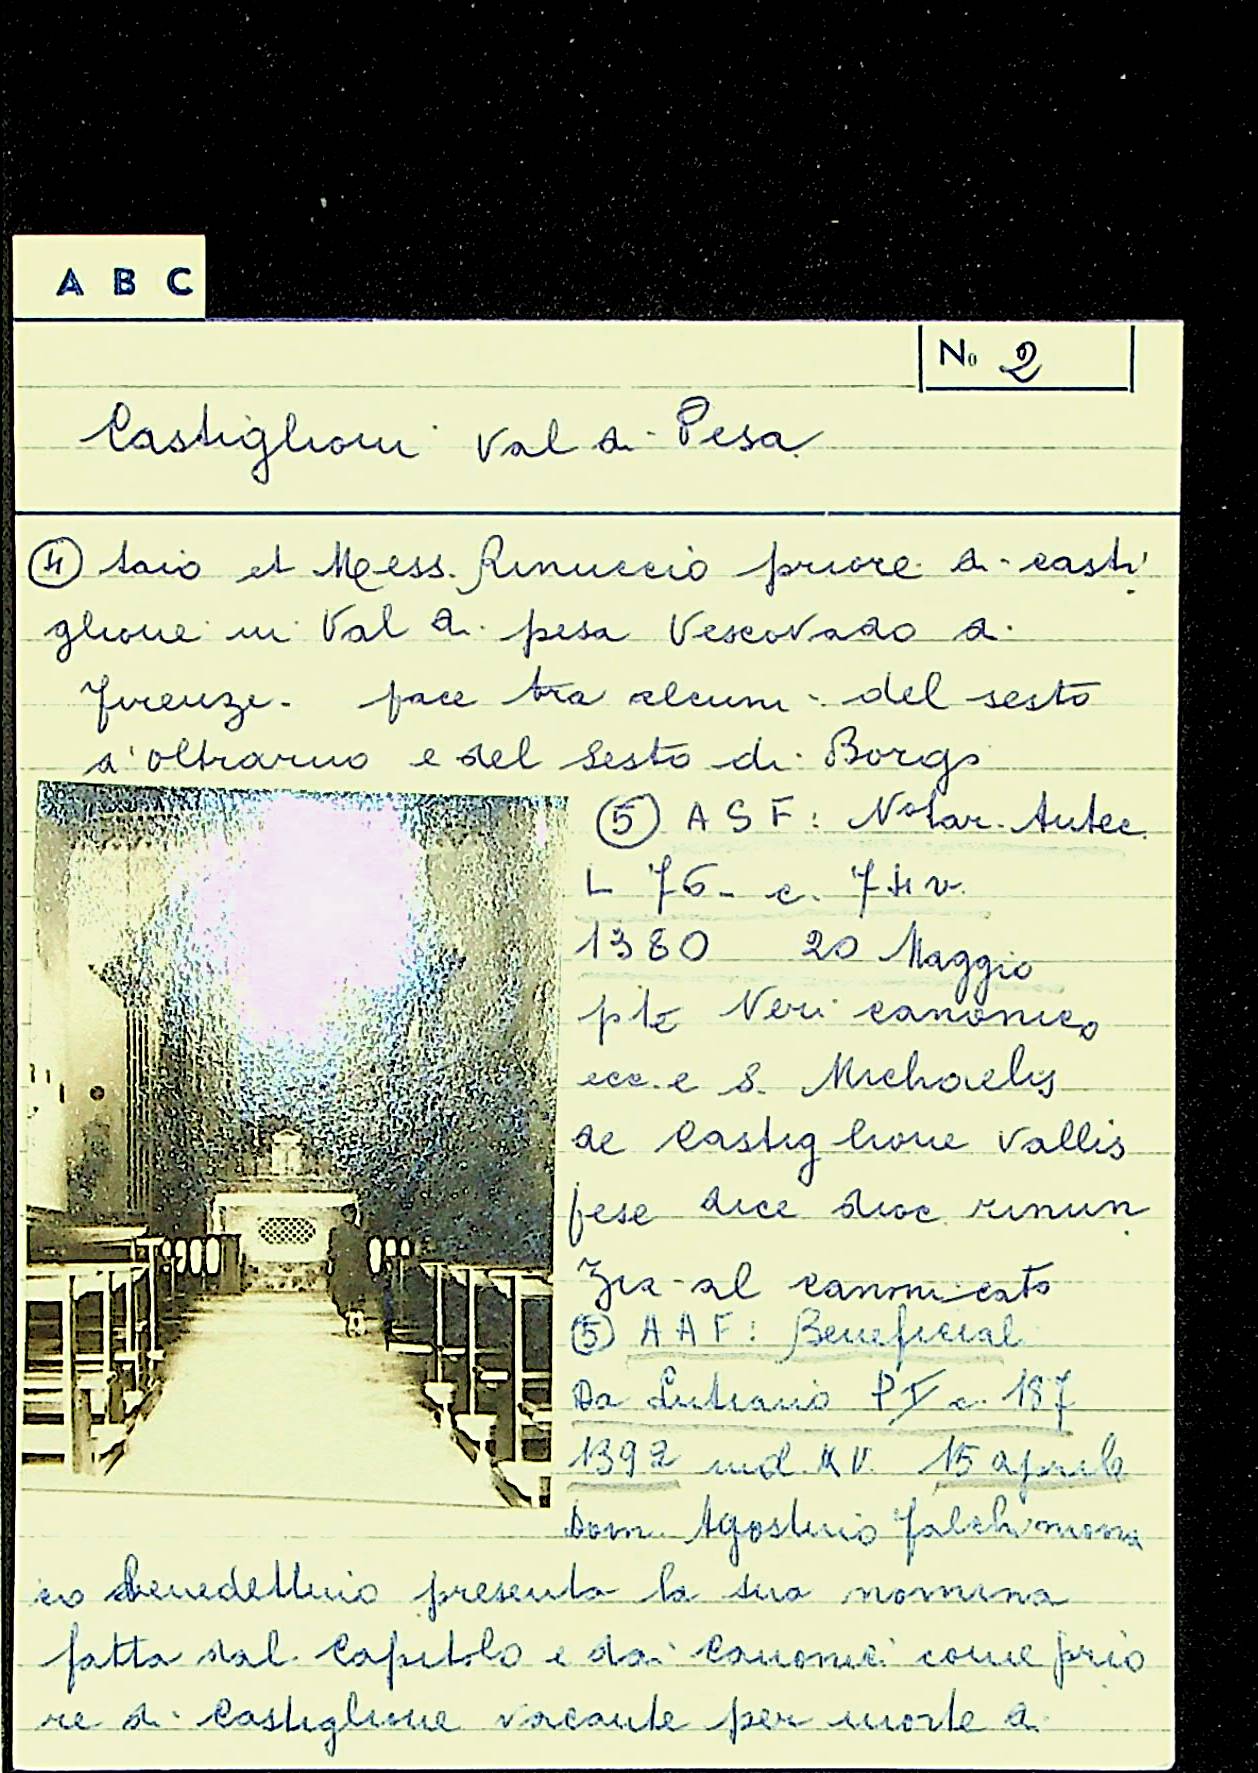 A B C
No 2
Castiglioni Val di Pesa
④ taio et Mess. Rinuccio priore di casti
glione in Val di pesa Vescovado di
Firenze. pace tra alcuni del sesto
d'oltrarno e del Sesto di Borgo
⑤ ASF: Notar. Antec.
L 76 - c. 74 v.
1380 20 Maggio
Neri canonico
ecc.e S. Michaelis
de Castiglione Vallis
pese dice dioc. rinun
zia al canonicato
⑤ AAF: Beneficial
Da Lutiano P I c. 187
1392 ind. XV. 15 aprile
Dom. Agostino Falchi mona
co benedettino presenta la sua nomina
fatta dal Capitolo e dai Canonici come prio
re di Castiglione vacante per morte di